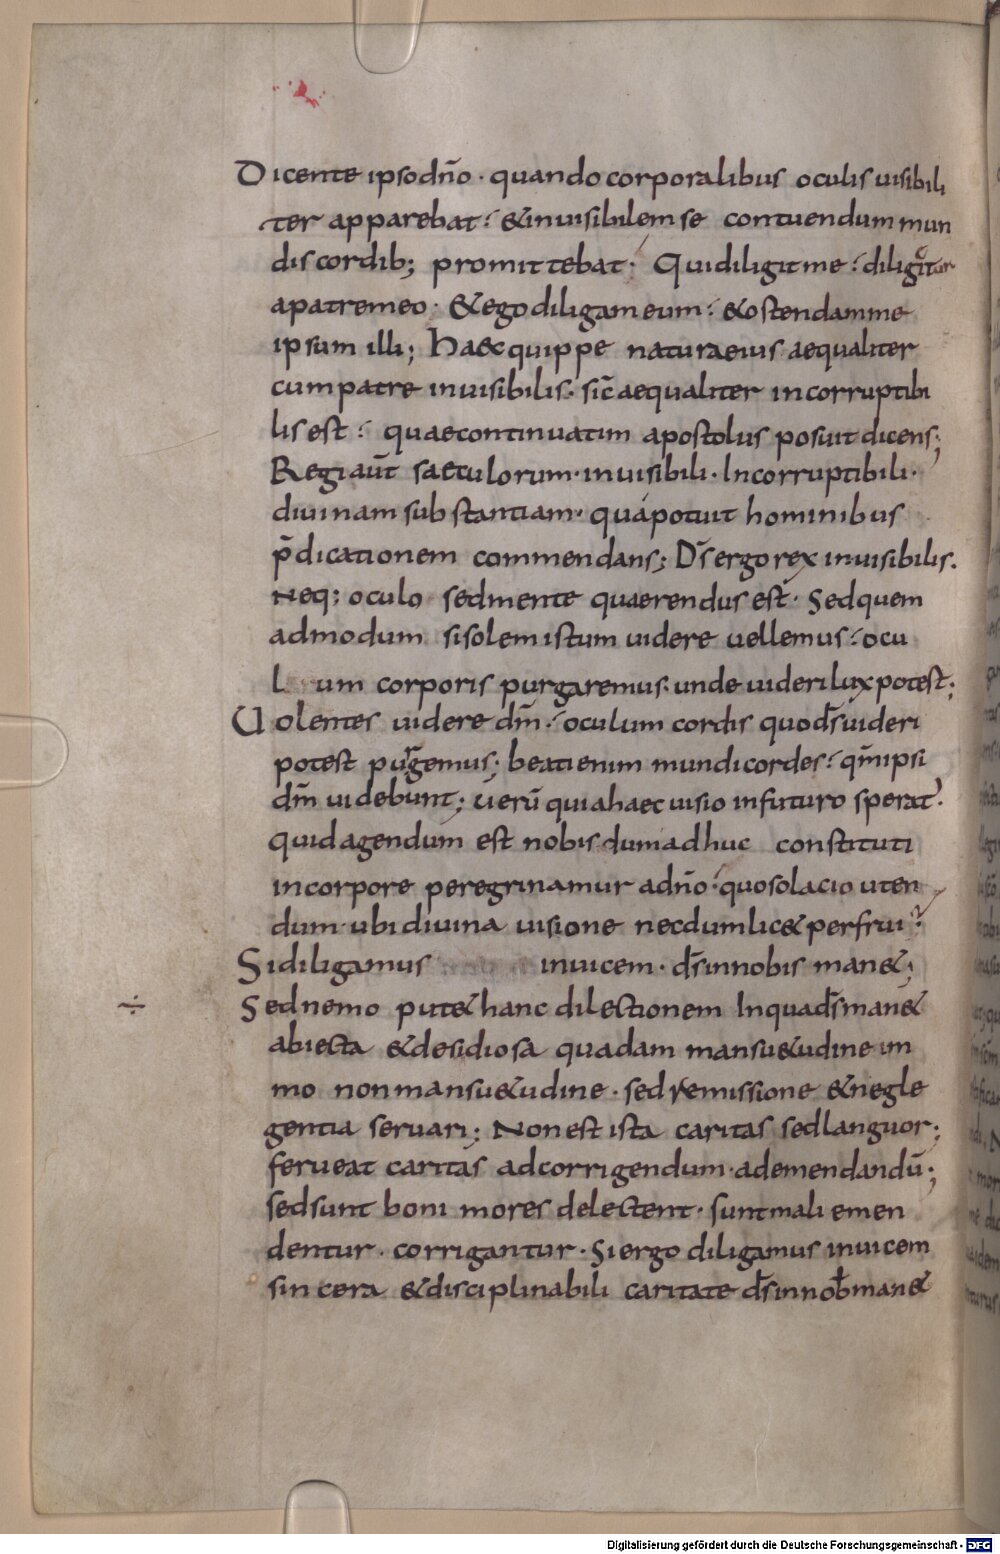 Dicente ipso dño · quando corporalibus oculis uisibili
ter apparebat · & inuisibilem se contuendum mun
dis cordib; promittebat · Qui diligit me · diligetur
a patre meo · & ego diligam eum · & ostendam me
ipsum illi; Haec quippe natura eius aequaliter
cum patre inuisibilis · sic̄ aequaliter incorruptibi
lis est · quae continuatim apostolus posuit dicens;
Regi aut̄ saeculorum · inuisibili · Incorruptibili ·
diuinam substantiam · qua potuit hominibus
p̄dicationem commendans; D̄s ergo rex inuisibilis.
Neq; oculo sed mente quaerendus est · Sed quem
admodum si solem istum uidere uellemus · ocu
l um corporis purgaremus · unde uideri lux potest;
Uolentes uidere dm̄ · oculum cordis quo d̄s uideri
potest purgemus; beati enim mundi cordes · qm̄ ipsi
dm̄ uidebunt; uerū quia haec uisio in futuro sperat᾽ ·
quid agendum est nobis dum adhuc constituti
in corpore peregrinamur a dño · quo solacio uten
dum · ubi diuina uisione necdum lic& perfrui?
Si diligamus inuicem · d̄s in nobis man&;
÷
Sed nemo put& hanc dilectionem In qua d̄s man&
abiecta & desidiosa quadam mansu&udine im
mo non mansu&udine · sed remissione & negle
gentia seruari; Non est ista caritas sed languor;
ferueat caritas ad corrigendum · ad emendandū;
sed sunt boni mores delectent · sunt mali emen
dentur · corrigantur · Si ergo diligamus inuicem
sincera & disciplinabili caritate d̄s in nob̄ man&
Digitalisierung gefördert durch die Deutsche Forschungsgemeinschaft - DFG